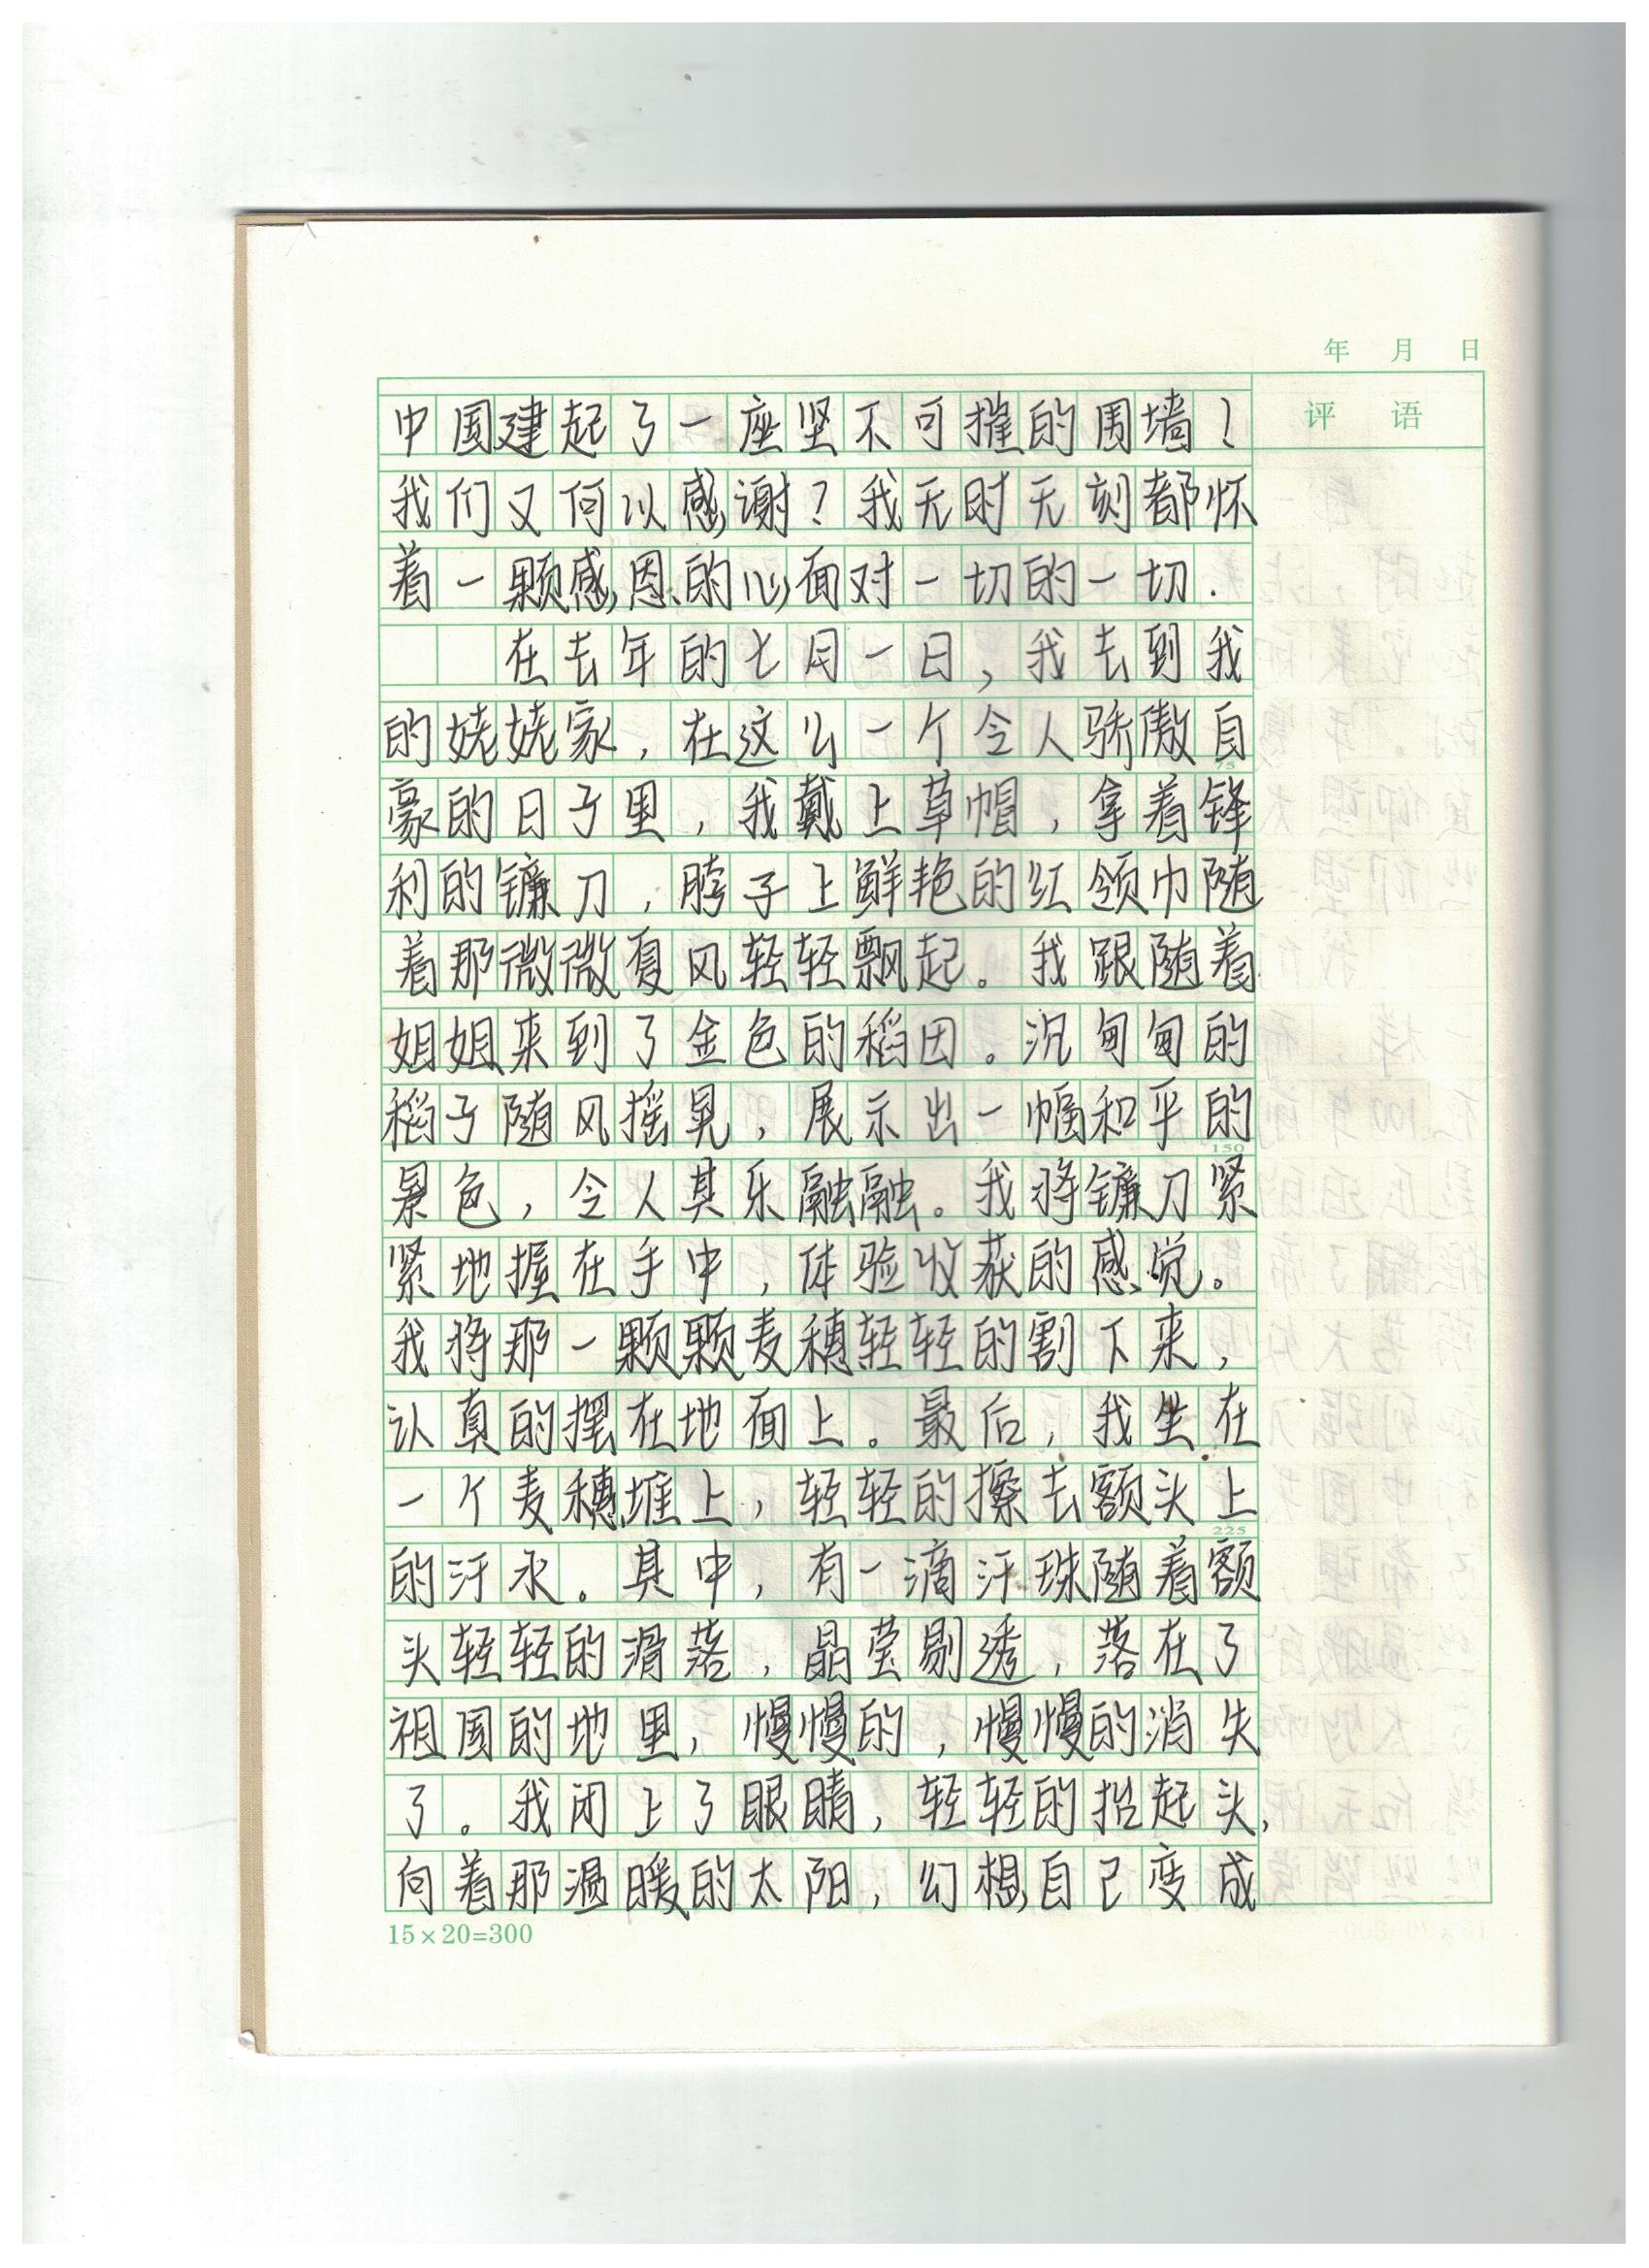 年 月 日
评 语
中国建起了一座坚不可摧的围墙？
我们又何以感谢？我无时无刻都怀
着一颗感恩的心面对一切的一切.
在去年的七月一日，我去到我
的姥姥家，在这么一个令人骄傲自
75
豪的日子里，我戴上草帽，拿着锋
利的镰刀，脖子上鲜艳的红领巾随
着那微微夏风轻轻飘起。我跟随着
姐姐来到了金色的稻田。沉甸甸的
稻子随风摇晃，展示出一幅和平的
150
景色，令人其乐融融。我将镰刀紧
紧地握在手中，体验收获的感觉。
我将那一颗颗麦穗轻轻的割下来，
认真的摆在地面上。最后，我坐在
一个麦穗堆上，轻轻的擦去额头上
225
的汗水。其中，有一滴汗珠随着额
头轻轻的滑落，晶莹剔透，落在了
祖国的地里，慢慢的，慢慢的消失
了。我闭上了眼睛，轻轻的抬起头，
向着那温暖的太阳，幻想自己变成
15×20=300